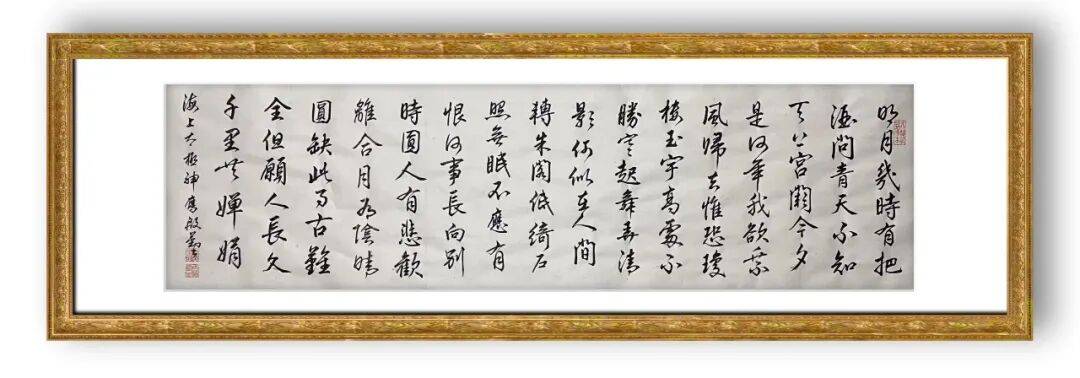 明月幾時有把
酒問青天不知
天上宮闕今夕
是何年我欲乘
風歸去惟恐瓊
樓玉宇高處不
勝寒起舞弄清
影何似在人間
轉朱閣低綺户
照無眠不應有
恨何事長向別
時圓人有悲歡
離合月有陰晴
圓缺此事古難
全但願人長久
千里共嬋娟
海上太極神鷹殷